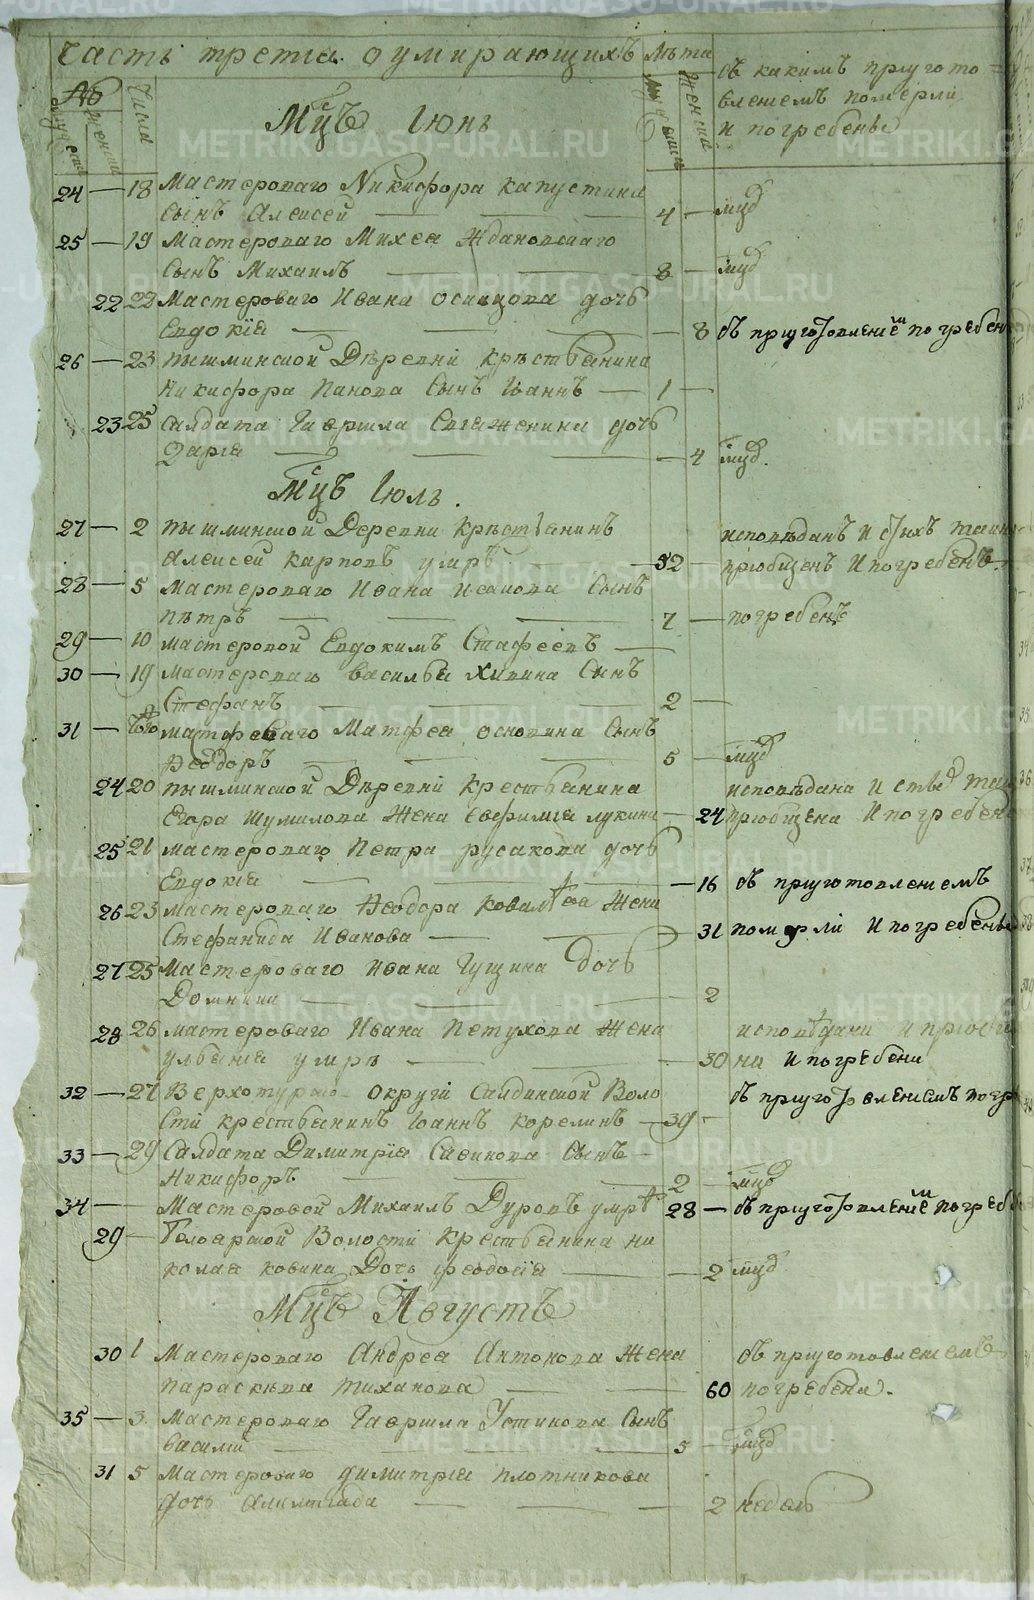 Часть третіа оумирающихъ
Лѣта
съ какимъ пригото
влениемъ померли
и погребены
№
Числа
мужеска
женска
Мцъ Іюнь
24 — 18 Мастероваго Никифора Капустина
сынъ Алексей — 4 — мцд
25 — 19 Мастероваго Михея Ждановскаго
Сынъ Михаилъ — 8 — мцд
22 22 Мастероваго Ивана Осинцова дочь
Евдокіа — 8 съ приготовлениемъ погребен
26 — 23 пышминской Дѣревни крѣстьянина
Никифора Панова Сынъ Іоаннъ — 1 —
23 25 Салдата Гавриила дочь
Дарiа — 4 мцд.
Мцъ Іюль.
27 — 2 пышминской Деревни Крѣстьянинъ
Алексей Карповъ умрѣ — 52 — исповѣданъ и с̃тыхъ таин
приобщенъ И погребенъ.
28 — 5 Мастероваго Ивана Сынъ
пѣтръ — 7 — погребенъ
29 — 10 мастеровой Евдокимъ Стафеевъ —
30 — 19 мастероваго василья Хивина Сынъ
Стефанъ — 2 —
31 — Матфеа Сынъ
Феодоръ — 5 — мцд
24 20 пышминской Дѣревнi крестьянина
Егора Шумилова Жена Евфимiа лукина — 24 исповѣдана и
приобщена И погребен
25 21 мастероваго Петра русакова дочь
Евдокiа — 16 съ приготовлениемъ
26 23 Мастероваго Феодора Жена
Стефанида Иванова — 31 померли И погребены
27 25 Мастероваго Ивана Гущина дочь
Домника — 2
28 26 мастероваго Ивана Петухова Жена
улияниа умрѣ — 30 исповѣдана и приобще
на И погребена
32 — 27 Верхотурской округи Салдинской Воло
сти крестьянинъ Іоаннъ корелинъ — 39 съ приготовлениемъ погр
33 — 29 Салдата Димитрiа Савинова Сынъ —
Никифоръ — 2 — мцд
34 — Мастеровой Михаилъ Дуровъ умрѣ 28 — съ приготовлениемъ погреб
29 — Волости крестьянина ни
колаа ковина Дочь феодосiа — 2 мцд
Мцъ Августъ
30 1 Мастероваго Андреа Антонова Жена
параскѣва тиханова — 60 съ приготовлениемъ
погребена.
35 — 3 Мастероваго Гавриила Устинова Сынъ
василий — 5 — мцд
31 5 Мастероваго димитрiа плотникова
дочь — 2 недель
METRIKI.GASO-URAL.RU